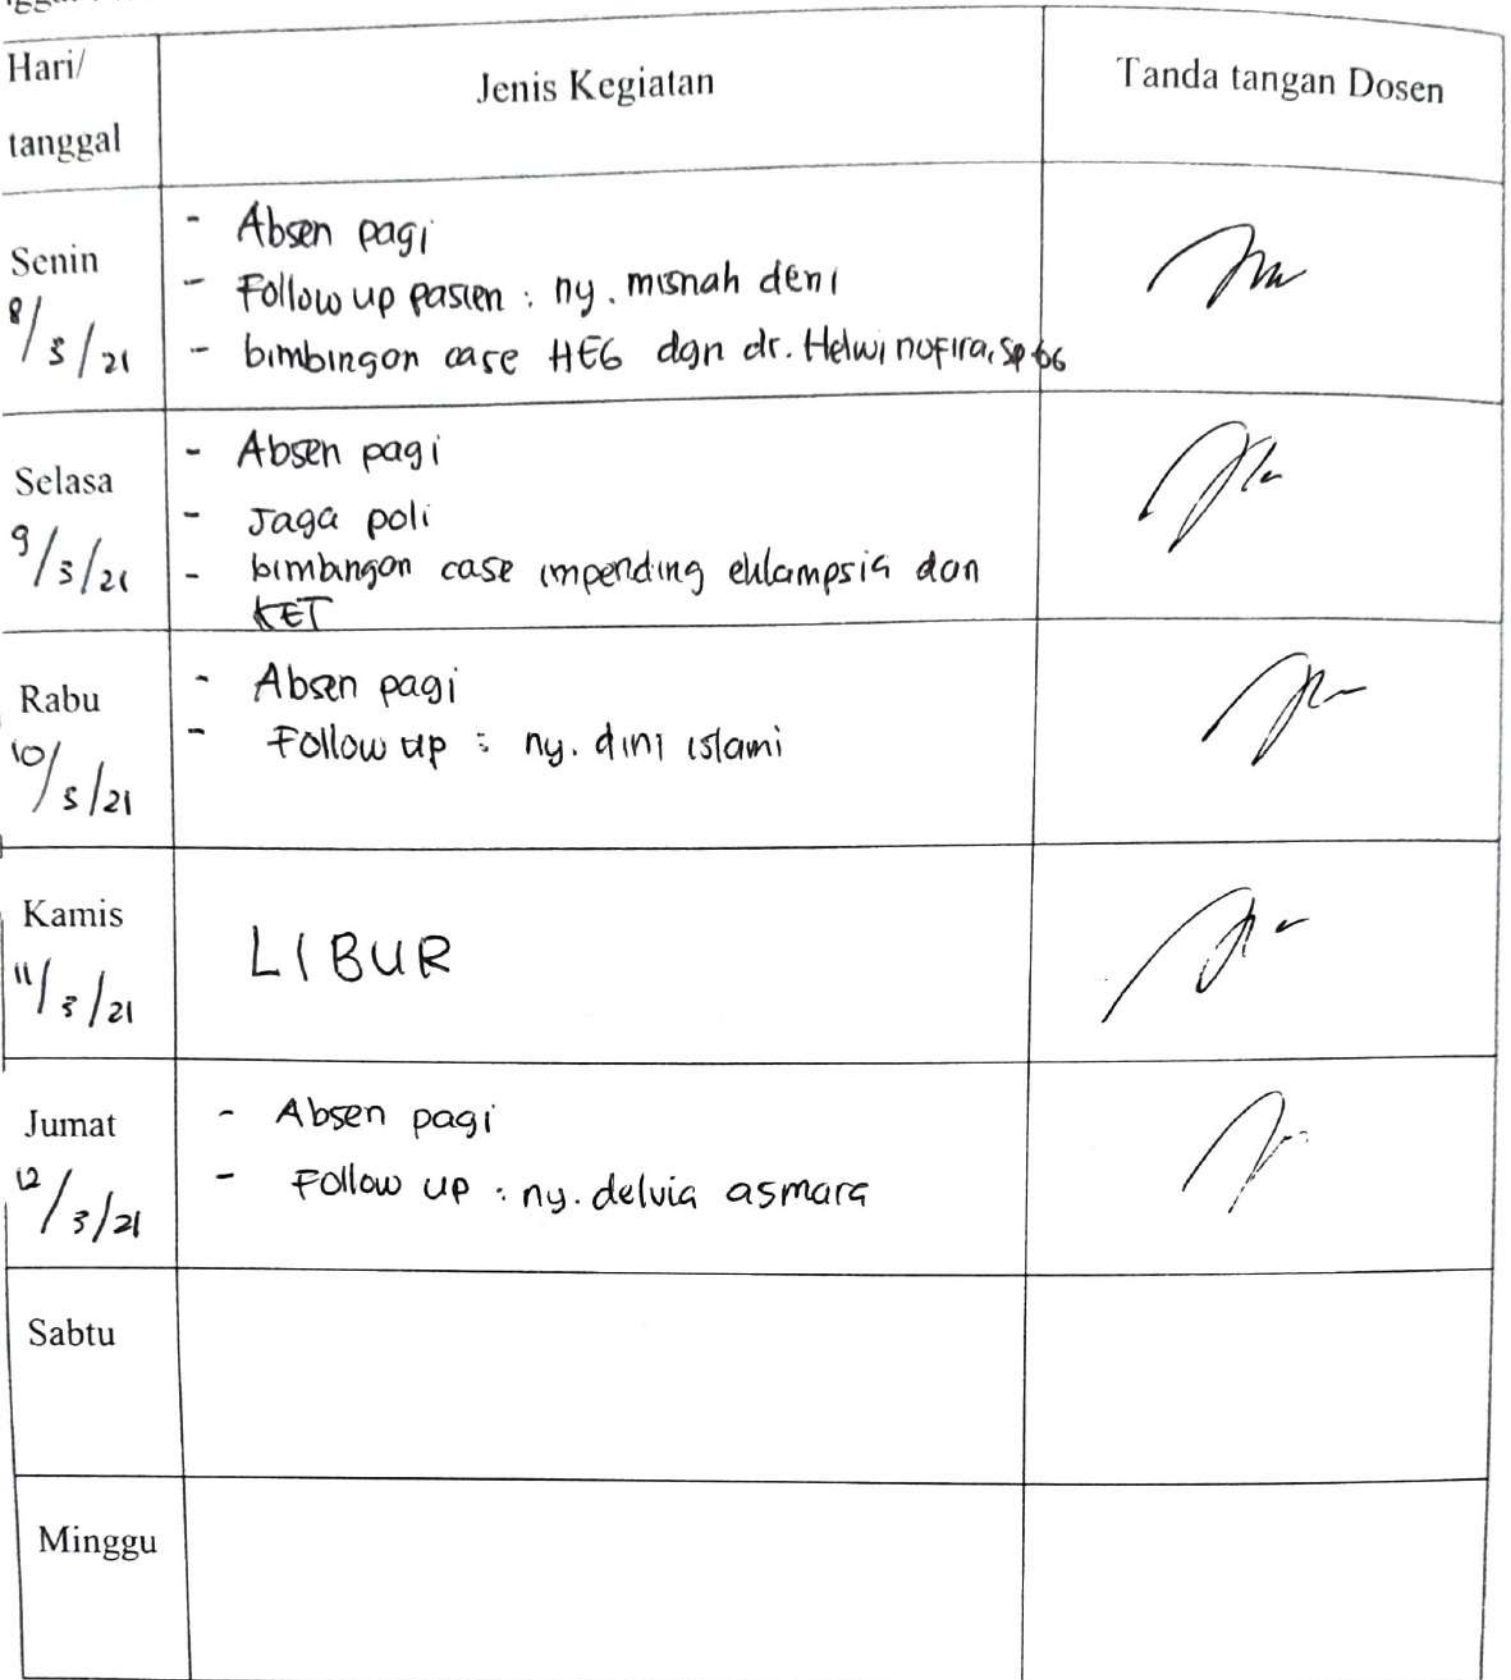 Hari/ tanggal
Jenis Kegiatan
Tanda tangan Dosen
Senin
8/3/21
- Absen pagi
- Follow up pasien : ny. misnah deni
- bimbingan case HEG dgn dr. Helwi nofira, Sp OG
Selasa
9/3/21
- Absen pagi
- Jaga poli
- bimbingan case impending eklampsia dan
KET
Rabu
10/3/21
- Absen pagi
- Follow up : ny. dini islami
Kamis
11/3/21
LIBUR
Jumat
12/3/21
- Absen pagi
- Follow up : ny. delvia asmara
Sabtu
Minggu